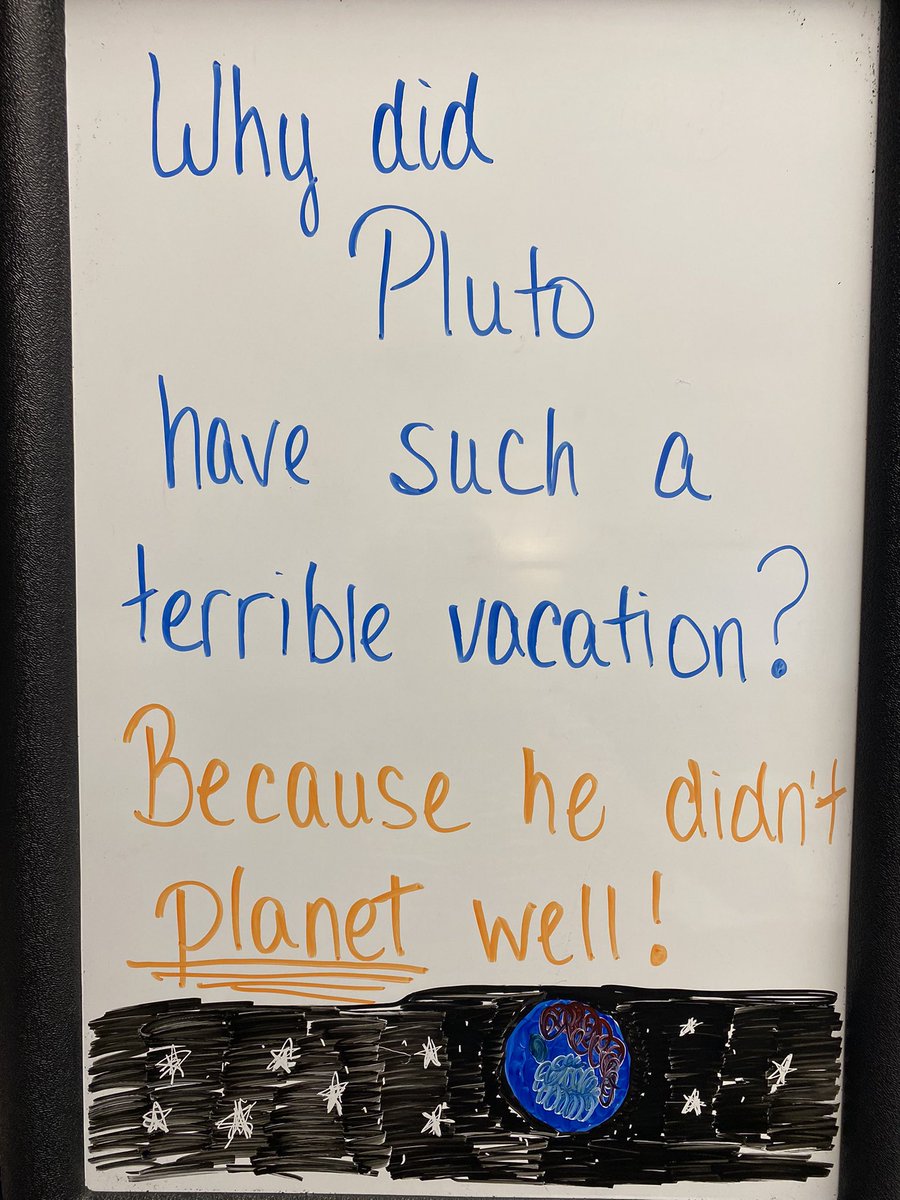 Why did
Pluto
have such a
terrible vacation?
Because he didn't
planet well!